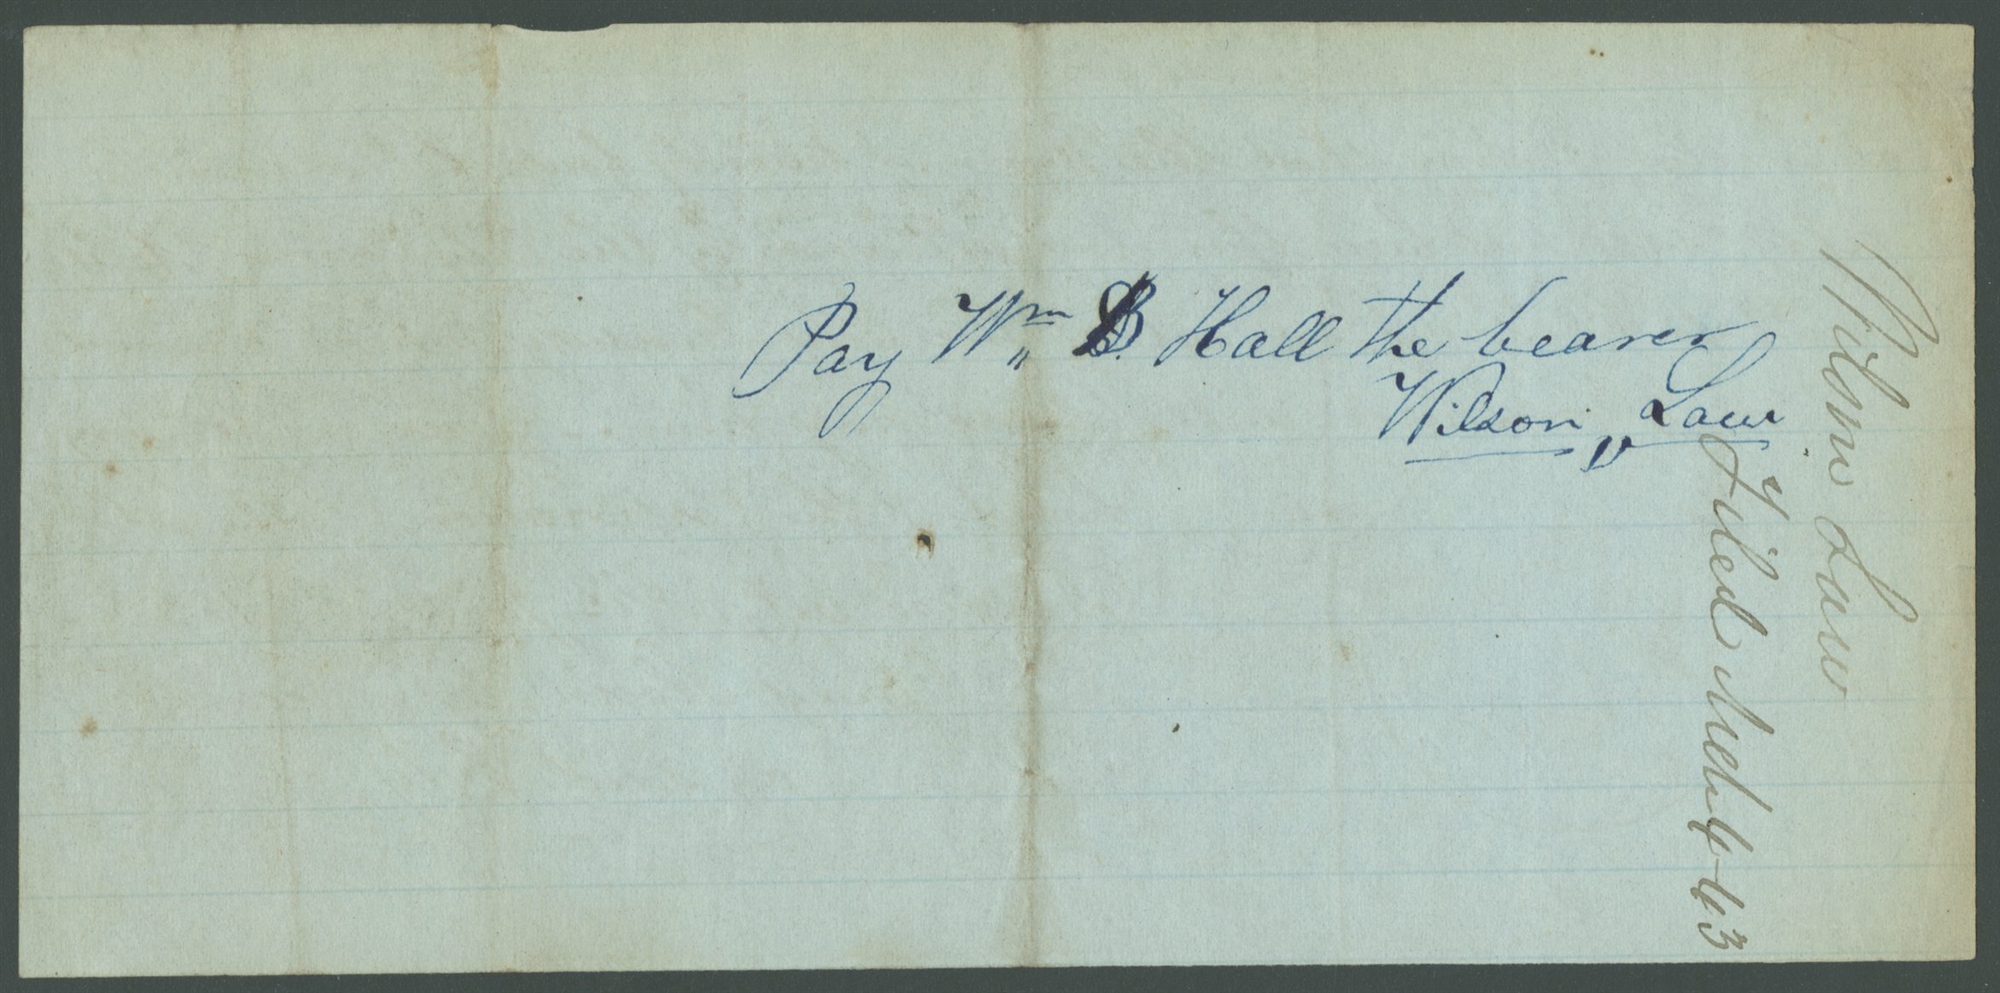 Pay Wm B. Hall the bearer
Wilson Law
Wilson Law
Filed Mch 4-63